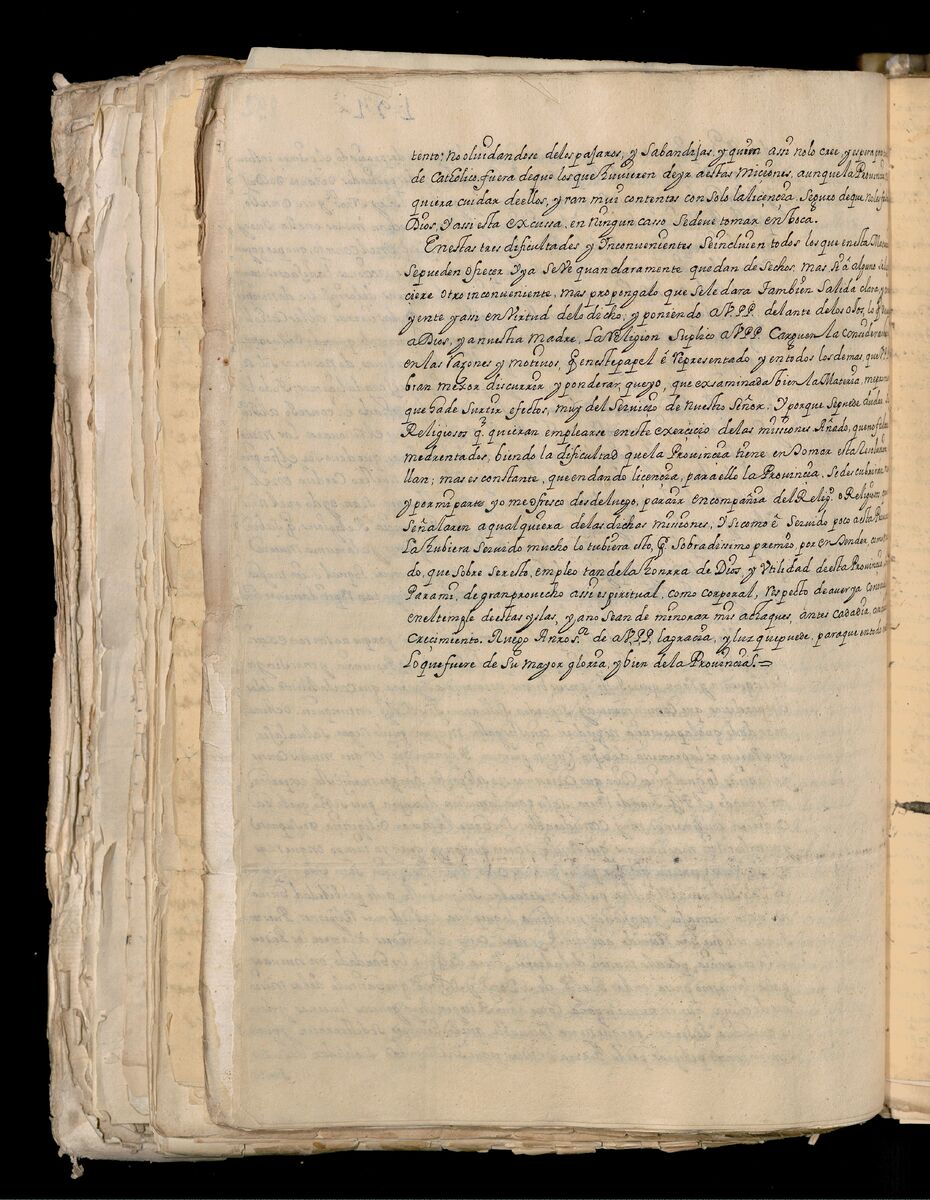 tento; no oluidandose delos pajaros, y Sabandijas, y quien assi nolo cree, y espera
de Catholico, fuera deque los que huuieren de yr a estas Misiones, aunque la Prouincia
quiera cuidar de ellos, yran mui contentos con solo la licencia. Seguro de que no les
Dios, y assi esta excussa, en ningun caso, Se deue tomar en boca.
En estas tres dificultades y Inconuenientes Se incluien todos los que en esta
Se pueden ofrecer Y ya Se Ve quan claramente quedan de sechos, mas, Si â alguno
ciere otro inconueniente, mas propongalo que Se le dara Tambien Salida clara, y
y ente y assi en Virtud delo dicho; y poniendo a V.PP. delante delos ojos, lo q̃
a Dios, y a nuestra Madre, La Religion Suplico a V.PP. Carguen la
en las Razones y motiuos, q̃ en este papel é Representado y en todos los demas, que
bran mejor discurrir, y ponderar, que yo, que examinada bien la Materia,
que ha de Surtir efectos, muy del Seruicio de nuestro Señor. Y porque Se puede dudar
Religiosos q̃ quieran emplearse en este exercicio de las missiones Añado, que no
medrentados, biendo la dificultad que la Prouincia tiene en
llan; mas es constante, que en dando licencia, para ello la Prouincia, Se descubriran
y por mi parte yo me ofresco desde luego, para ir en compañia del Relig.º o Religiosos, que
Señalaren a qualquiera delas dichas missiones, Y si como ê Seruido poco a esta
La hubiera Seruido mucho lo tubiera esto, q̃ Sobradissimo premio, por
do, que Sobre Ser esto, empleo tan dela honrra de Dios, y Vtilidad de esta Prouincia
Para mi, de gran prouecho assi espiritual, como corporal, Respecto de auer ya
en el temple de estas yslas, y a no Sean de minorar mis achaques, antes cada dia,
Crecimiento. Ruego A nro S.r de a V.PP. la gracia, y luz que puede, para que en todo
Lo que fuere de Su mayor gloria, y bien de la Prouincia.=